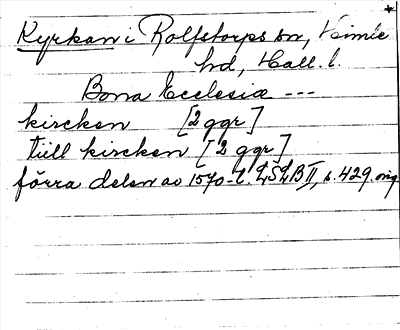 Kyrkan i Rolfstorps sn, Himle
hd, Hall. l.
Bona Ecclesiæ ---
kircken [2 ggr]
tiill kircken [2 ggr]
förra delen av 1570-t. LSLB II, s. 429. orig